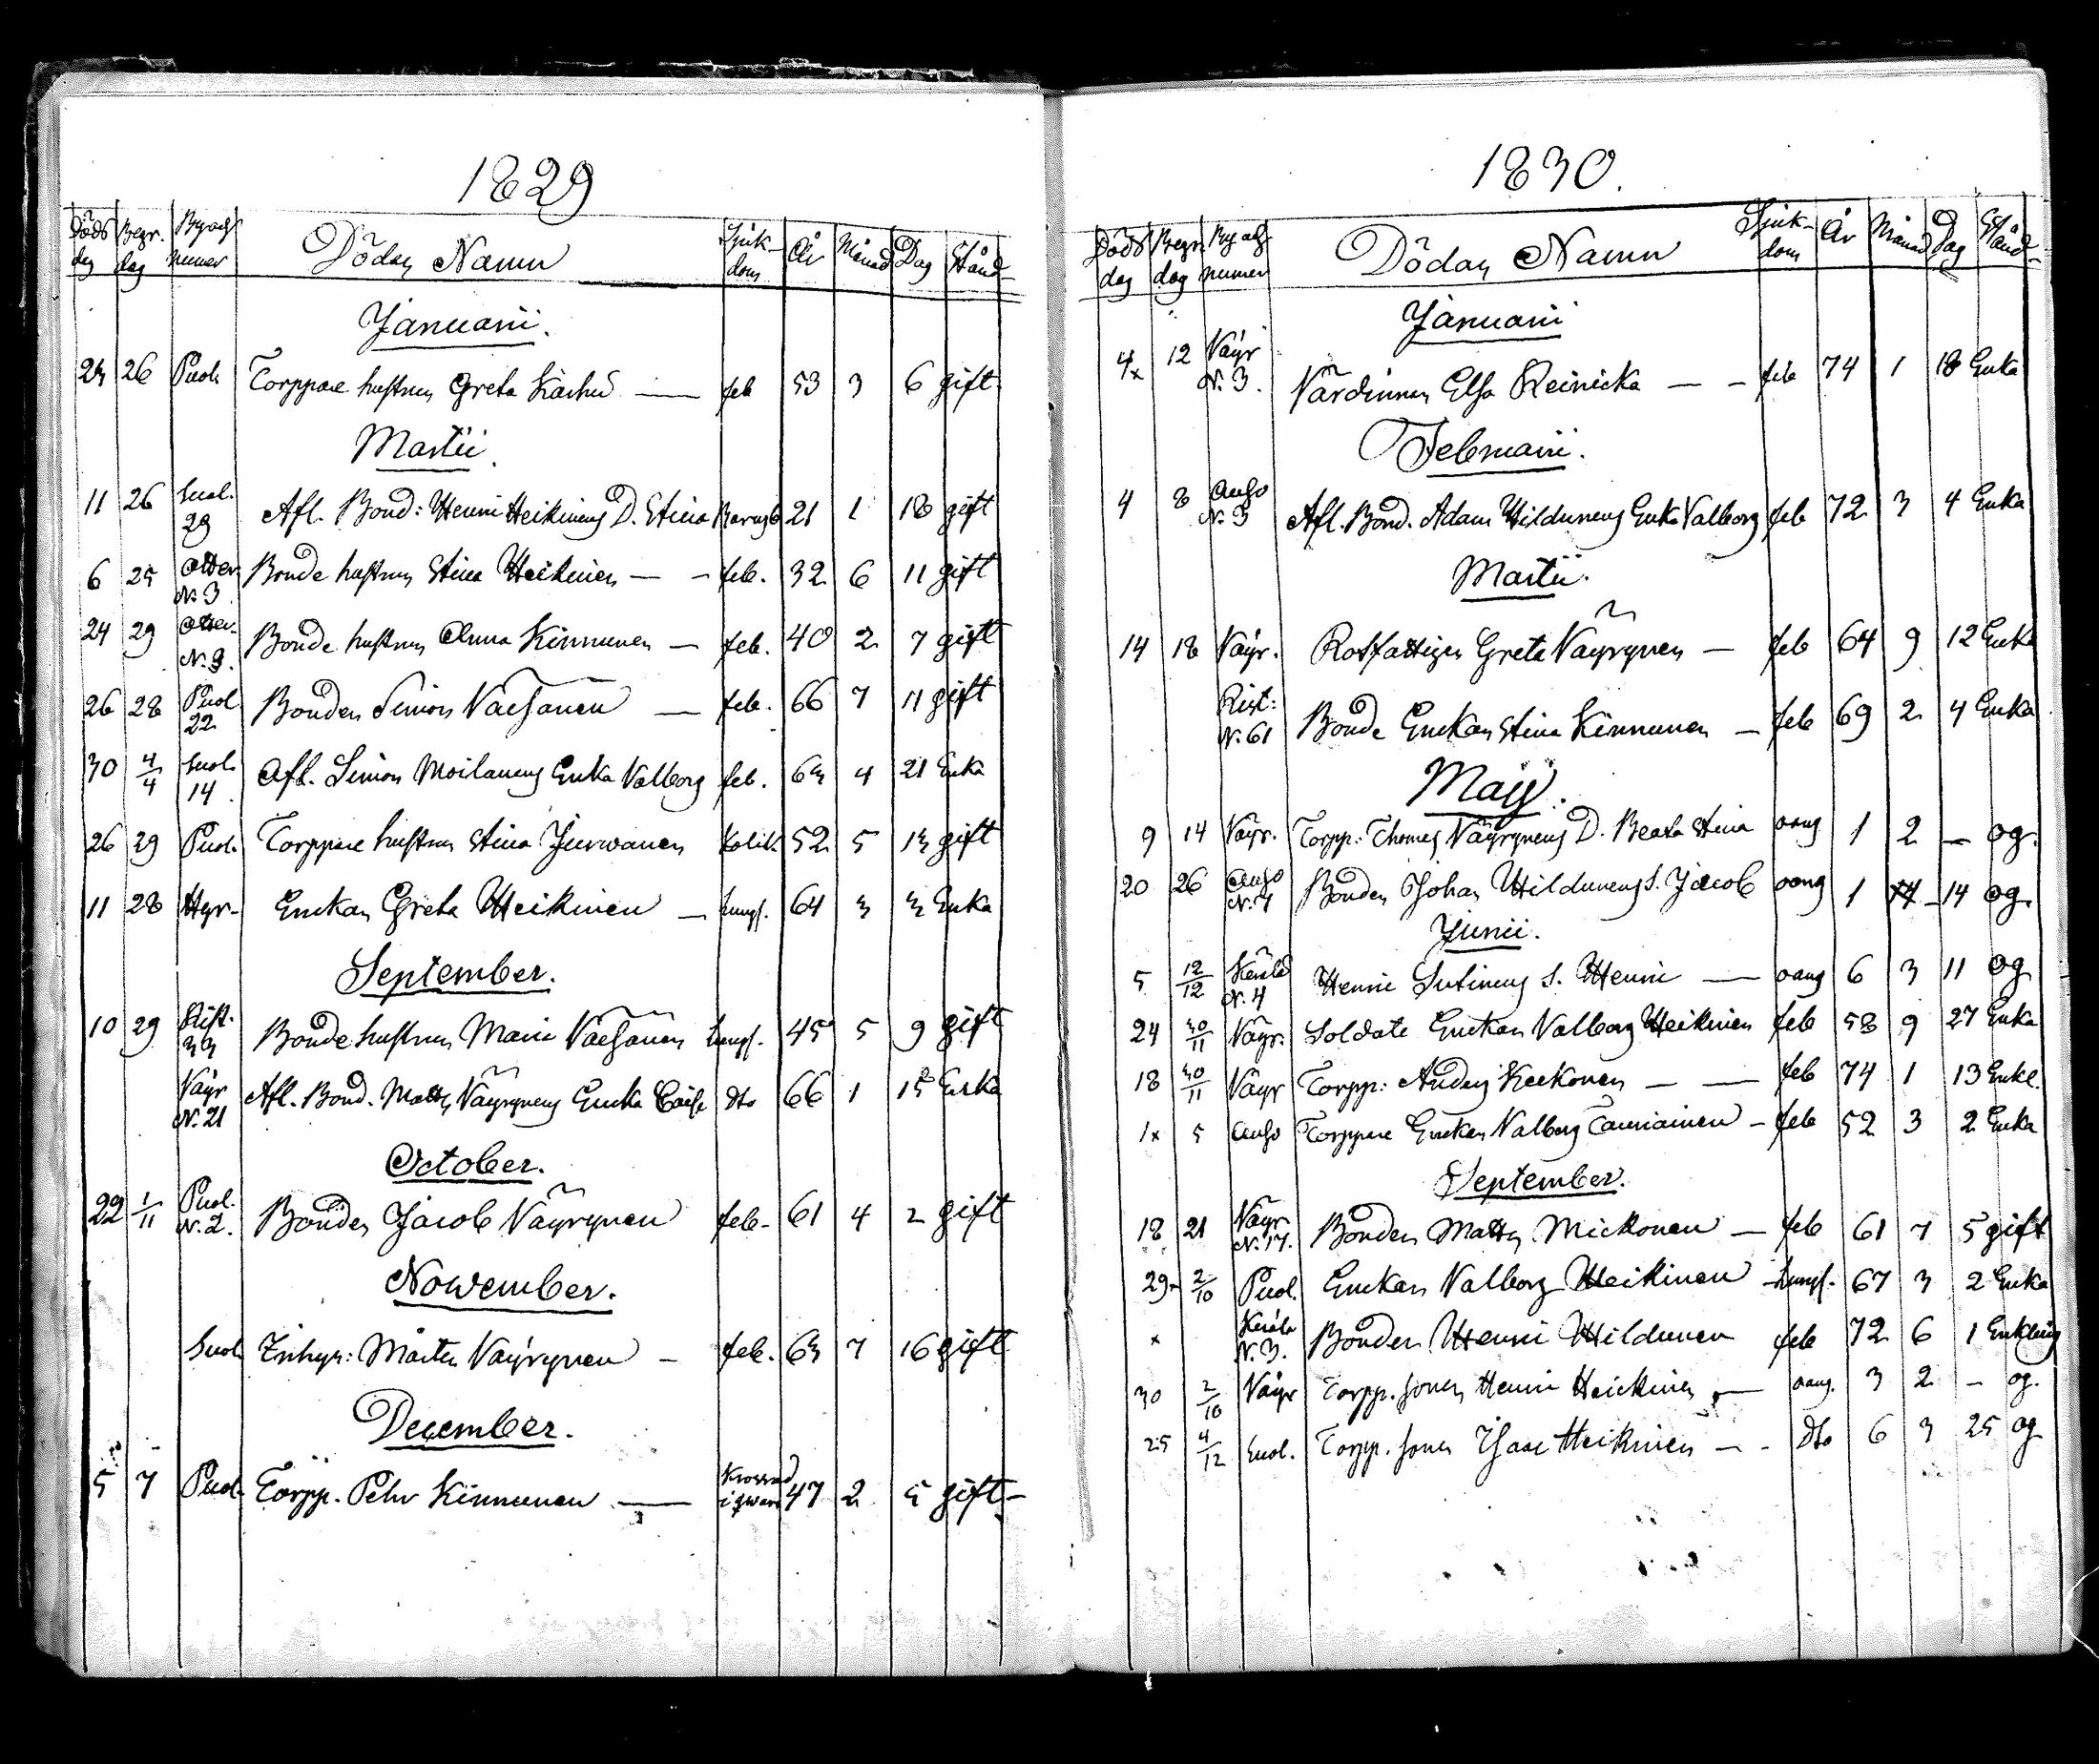 1829
Döds dag Begr. dag Byocf numer Dödas Namn Sjuk-dom År Månad Dag Stånd
Januarii.
23 26 Puol. Torppare hustrun Greta Kärhu — feb 53 3 6 gift
Martii.
11 26 Suol. 29 Afl. Bond: Henric Heikinens D. Stina Barnsb 21 1 18 gift
6 25 Otter N. 3 Bonde hustrun Stina Heikinen — – feb. 32 6 11 gift
24 29 Otter. N. 9. Bonde hustrun Anna Kinnunen — feb. 40 2 7 gift
26 28 Puol 22 Bonden Simon Väisänen — feb. 66 7 11 gift
30 4/4 Suol. 14 Afl. Simon Moilanens Enka Valborg feb. 63 4 21 Enka
26 29 Puol. Torppare hustrun Stina Juwonen Kolik. 52 5 13 gift
11 28 Hyr. Enckan Greta Heikinen — lungs. 64 3 3 Enka
September.
10 29 Rist. 33 Bonde hustrun Maria Väisänen lungs. 45 5 9 gift
Väyr N. 21 Afl. Bond. Matts Väyrynens Encka Caisa dto 66 1 15 Enka
October.
22 1/11 Puol. N. 2. Bonden Jacob Väyrynen feb. 61 4 2 gift
Nowember.
Suol. Inhys: Mårten Väyrynen – feb. 63 7 16 gift
December.
5 7 Puol. Torpp. Pehr Kinnunen — Krossad i qwarn 47 2 5 gift –
1830.
Döds dag Begr. dag By ocf numer Dödas Namn Sjuk-dom År Månad Dag Stånd
Januarii
4x 12 Väyr N. 3. Värdinnan Elsa Reinicka — – feb 74 1 18 Enka
Februarii.
4 8 Auho N. 3 Afl. Bond. Adam Hildunens Enka Valborg feb 72 3 4 Enka
Martii.
14 18 Väyr. Rotfattigen Greta Väyrynen — feb 64 9 12 Enka
Rist: N. 61 Bonde Enckan Stina Kinnunen – feb 69 2 4 Enka
Maij.
9 14 Väyr. Torpp: Thomas Väyrynens D. Beata Stina oang 1 2 — og.
20 26 Auho N. 7 Bonden Johan Hildunens S. Jacob oang 1 – 14 og.
Junii.
5 12/12 Keräla N. 4 Henric Sutinens S. Henric — oang 6 3 11 og
24 30/11 Väyr. Soldate Enckan Valborg Heikinen feb 58 9 27 Enka
18 30/11 Väyr Torpp: Anders Keckonen — — feb 74 1 13 Enkl.
1x 5 Auho Torppare Enckan Valborg Tauriainen – feb 52 3 2 Enka
September.
18 21 Väyr. N. 17. Bonden Matts Mickonen — feb 61 7 5 gift
29 2/10 Puol. Enckan Valborg Heikinen – lungs. 67 3 2 Enka
x Keräla N. 3. Bonden Henric Hildunen feb 72 6 1 Enkling
30 2/10 Väyr Torpp. sonen Henric Heickinen — oang. 3 2 – og.
25 4/12 Suol. Torpp. sonen Isaac Heikinen — – dto 6 3 25 og